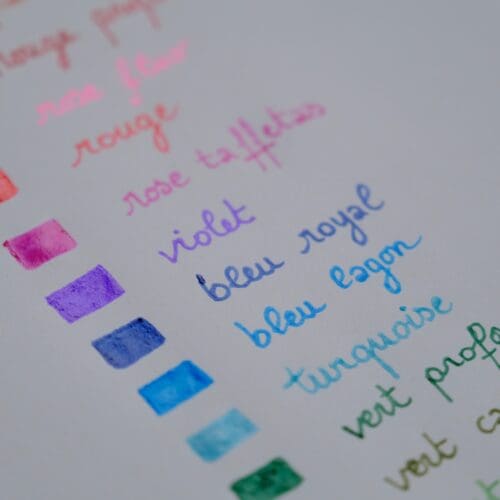 rouge
rose fluo
rouge
rose taffetas
violet
bleu royal
bleu lagon
turquoise
vert
vert